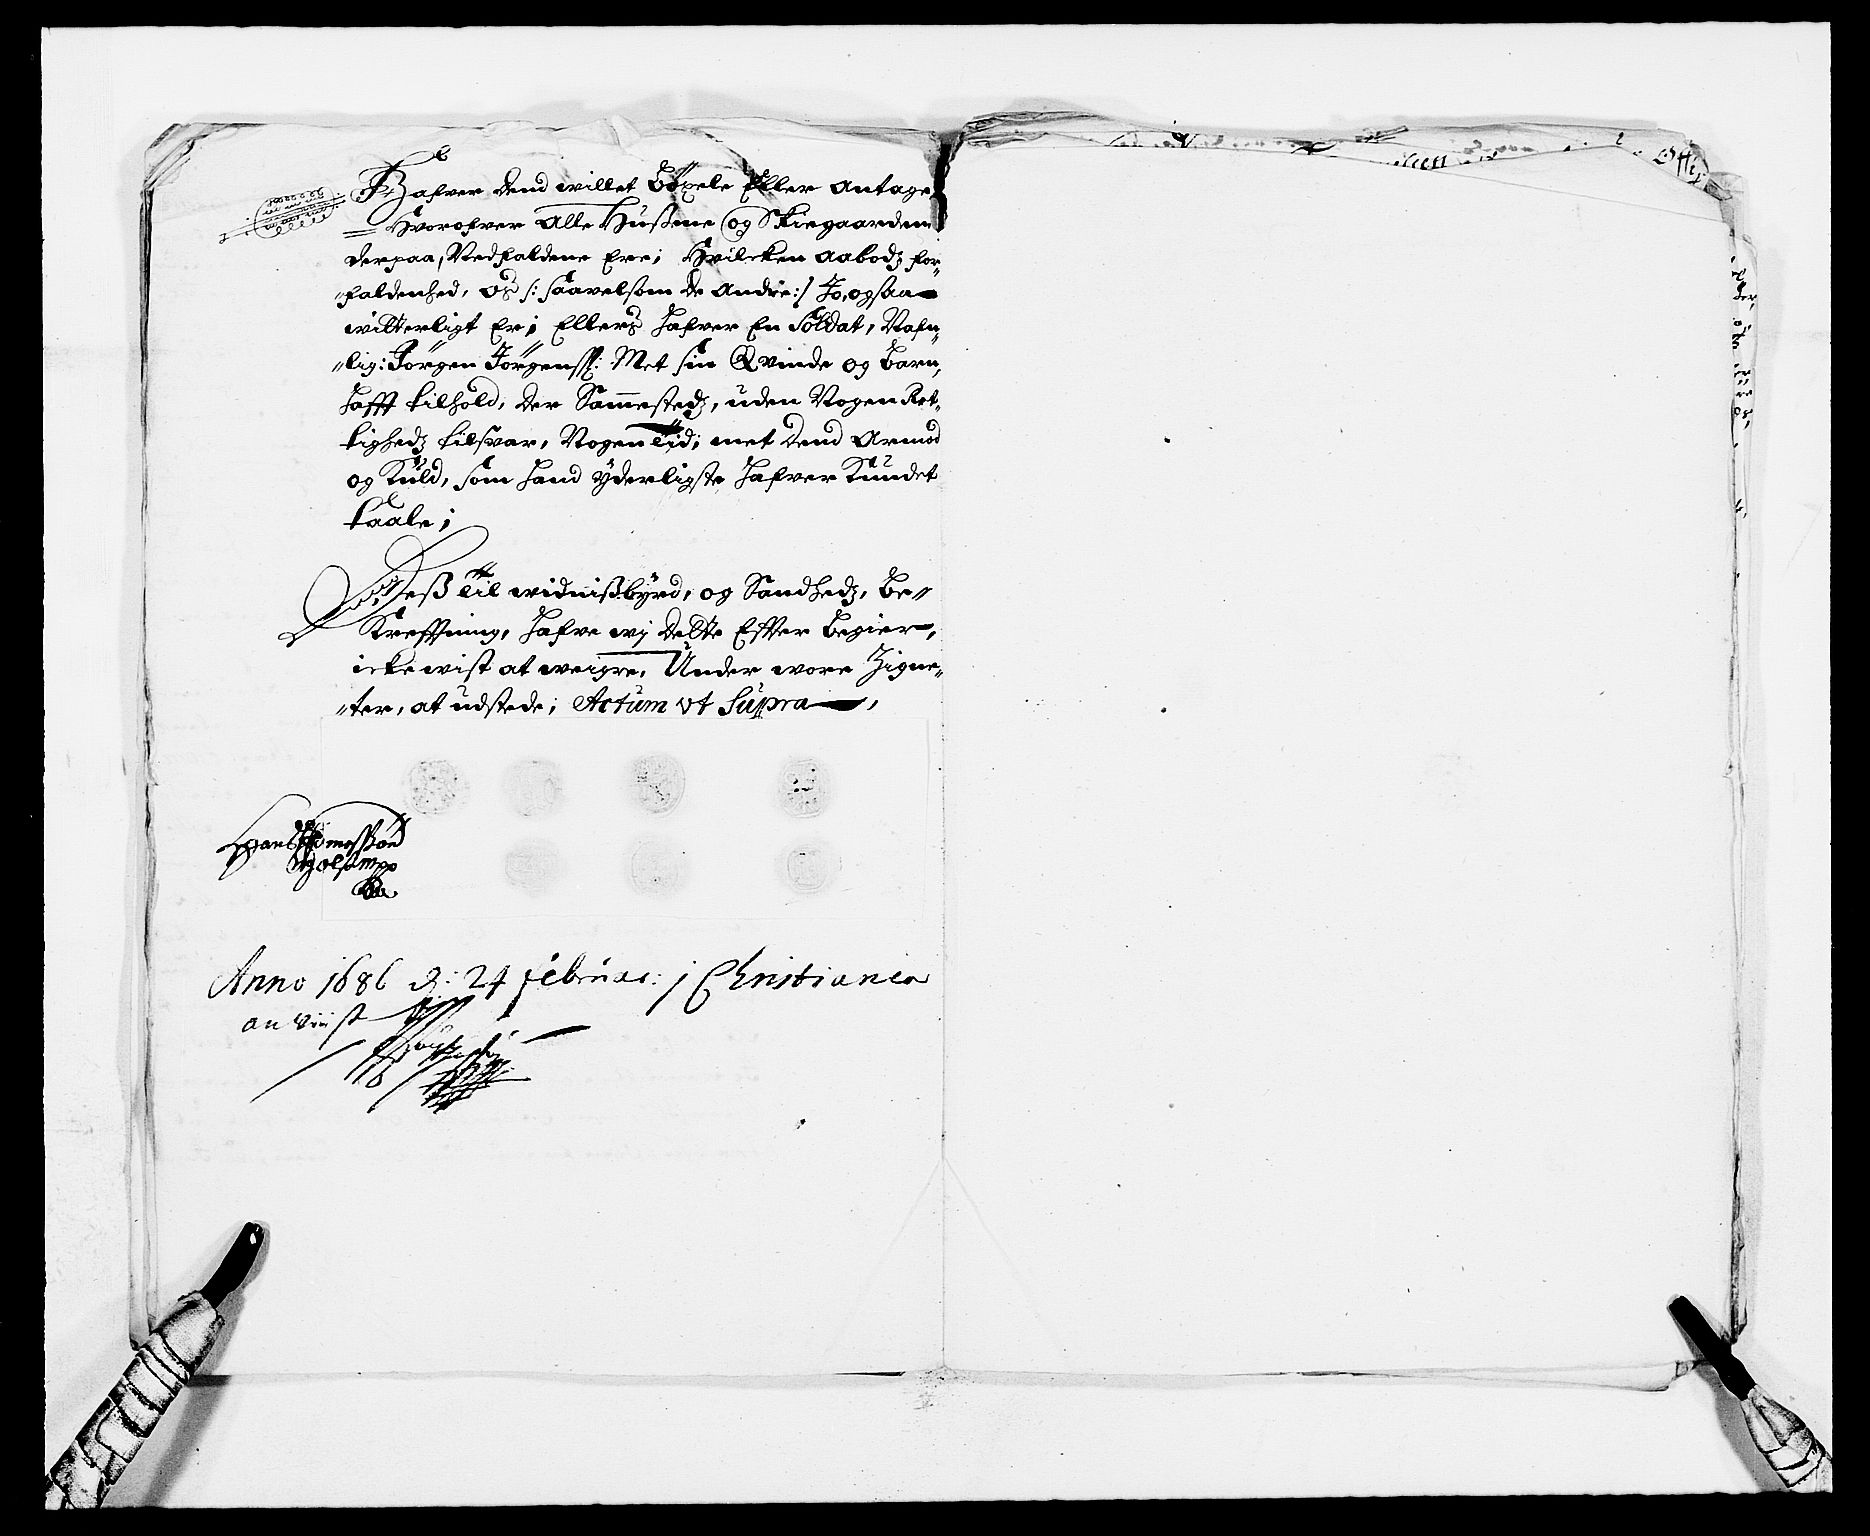 Hafver dend willet böxele Eller antage
Hvorofver alle Hußene og Skiegaardene
derpaa, Nedfaldene Ere; Hvilcken aabodz for-
faldenhed, os /: saavelsom de andre :/ Jo, ogsaa
witterligt Er; Ellers hafver En Soldat, Nafn-
lig: Jörgen Jörgenss: Met sin Qvinde og barn,
hafft tilhold, der Sammestedz, uden Nogen Ret-
tighedz tilsvar, Nogen Tid; met dend armod
og Kuld, som hand ÿderligste hafver Kundet
taale;
Deß Til widnißbÿrd, og Sandhedz, Be-
Kreffning, hafve wj dette Effter begier,
icke wist at weigre, Under wore Zigne-
ter, at udstede; Actum ut Supra
Anno 1686 d: 24 februar: j Christiania
an viist